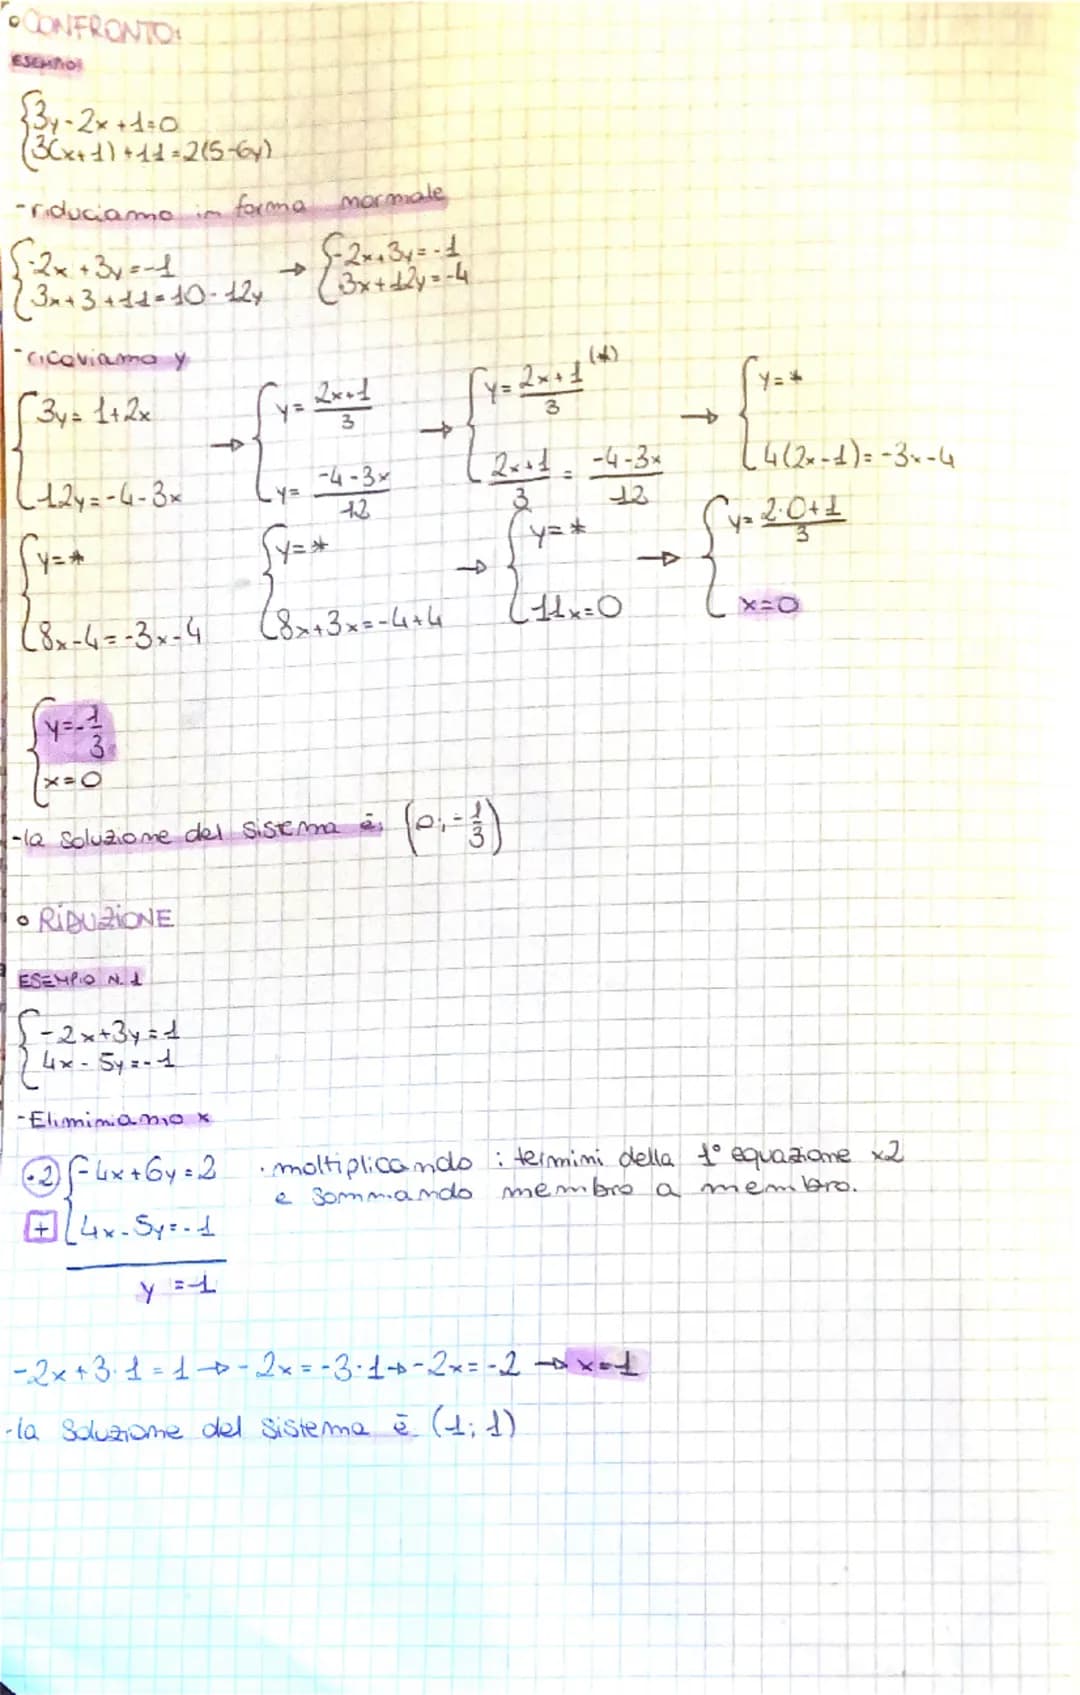 • CONFRONTO:
ESEMPIO:
{3y-2x+1=0
{3(x+1)+11=2(5-6y)
-riduciamo in forma normale
{-2x+3y=-1 → {-2x+3y=-1
{3x+3+11=10-12y {3x+12y=-4
-ricaviamo y
{3y=1+2x → {y=2x+1/3 → {y=2x+1/3 (*) → {y=*
{12y=-4-3x {y=-4-3x/12 {2x+1/3=-4-3x/12 {4(2x-1)=-3x-4
{y=* {y=* → {y=* → {y=2·0+1/3
{8x-4=-3x-4 {8x+3x=-4+4 {11x=0 {x=0
{y=-1/3
{x=0
-la soluzione del sistema è: (0;-1/3)
• RIDUZIONE
ESEMPIO N.1
{-2x+3y=1
{4x-5y=-1
-Eliminiamo x
·2 {-4x+6y=2 · moltiplicando i termini della 1° equazione x2
e sommando membro a membro.
+ {4x-5y=-1
y=1
-2x+3·1=1→-2x=-3·1→-2x=-2→x=1
-la soluzione del sistema è (1;1)